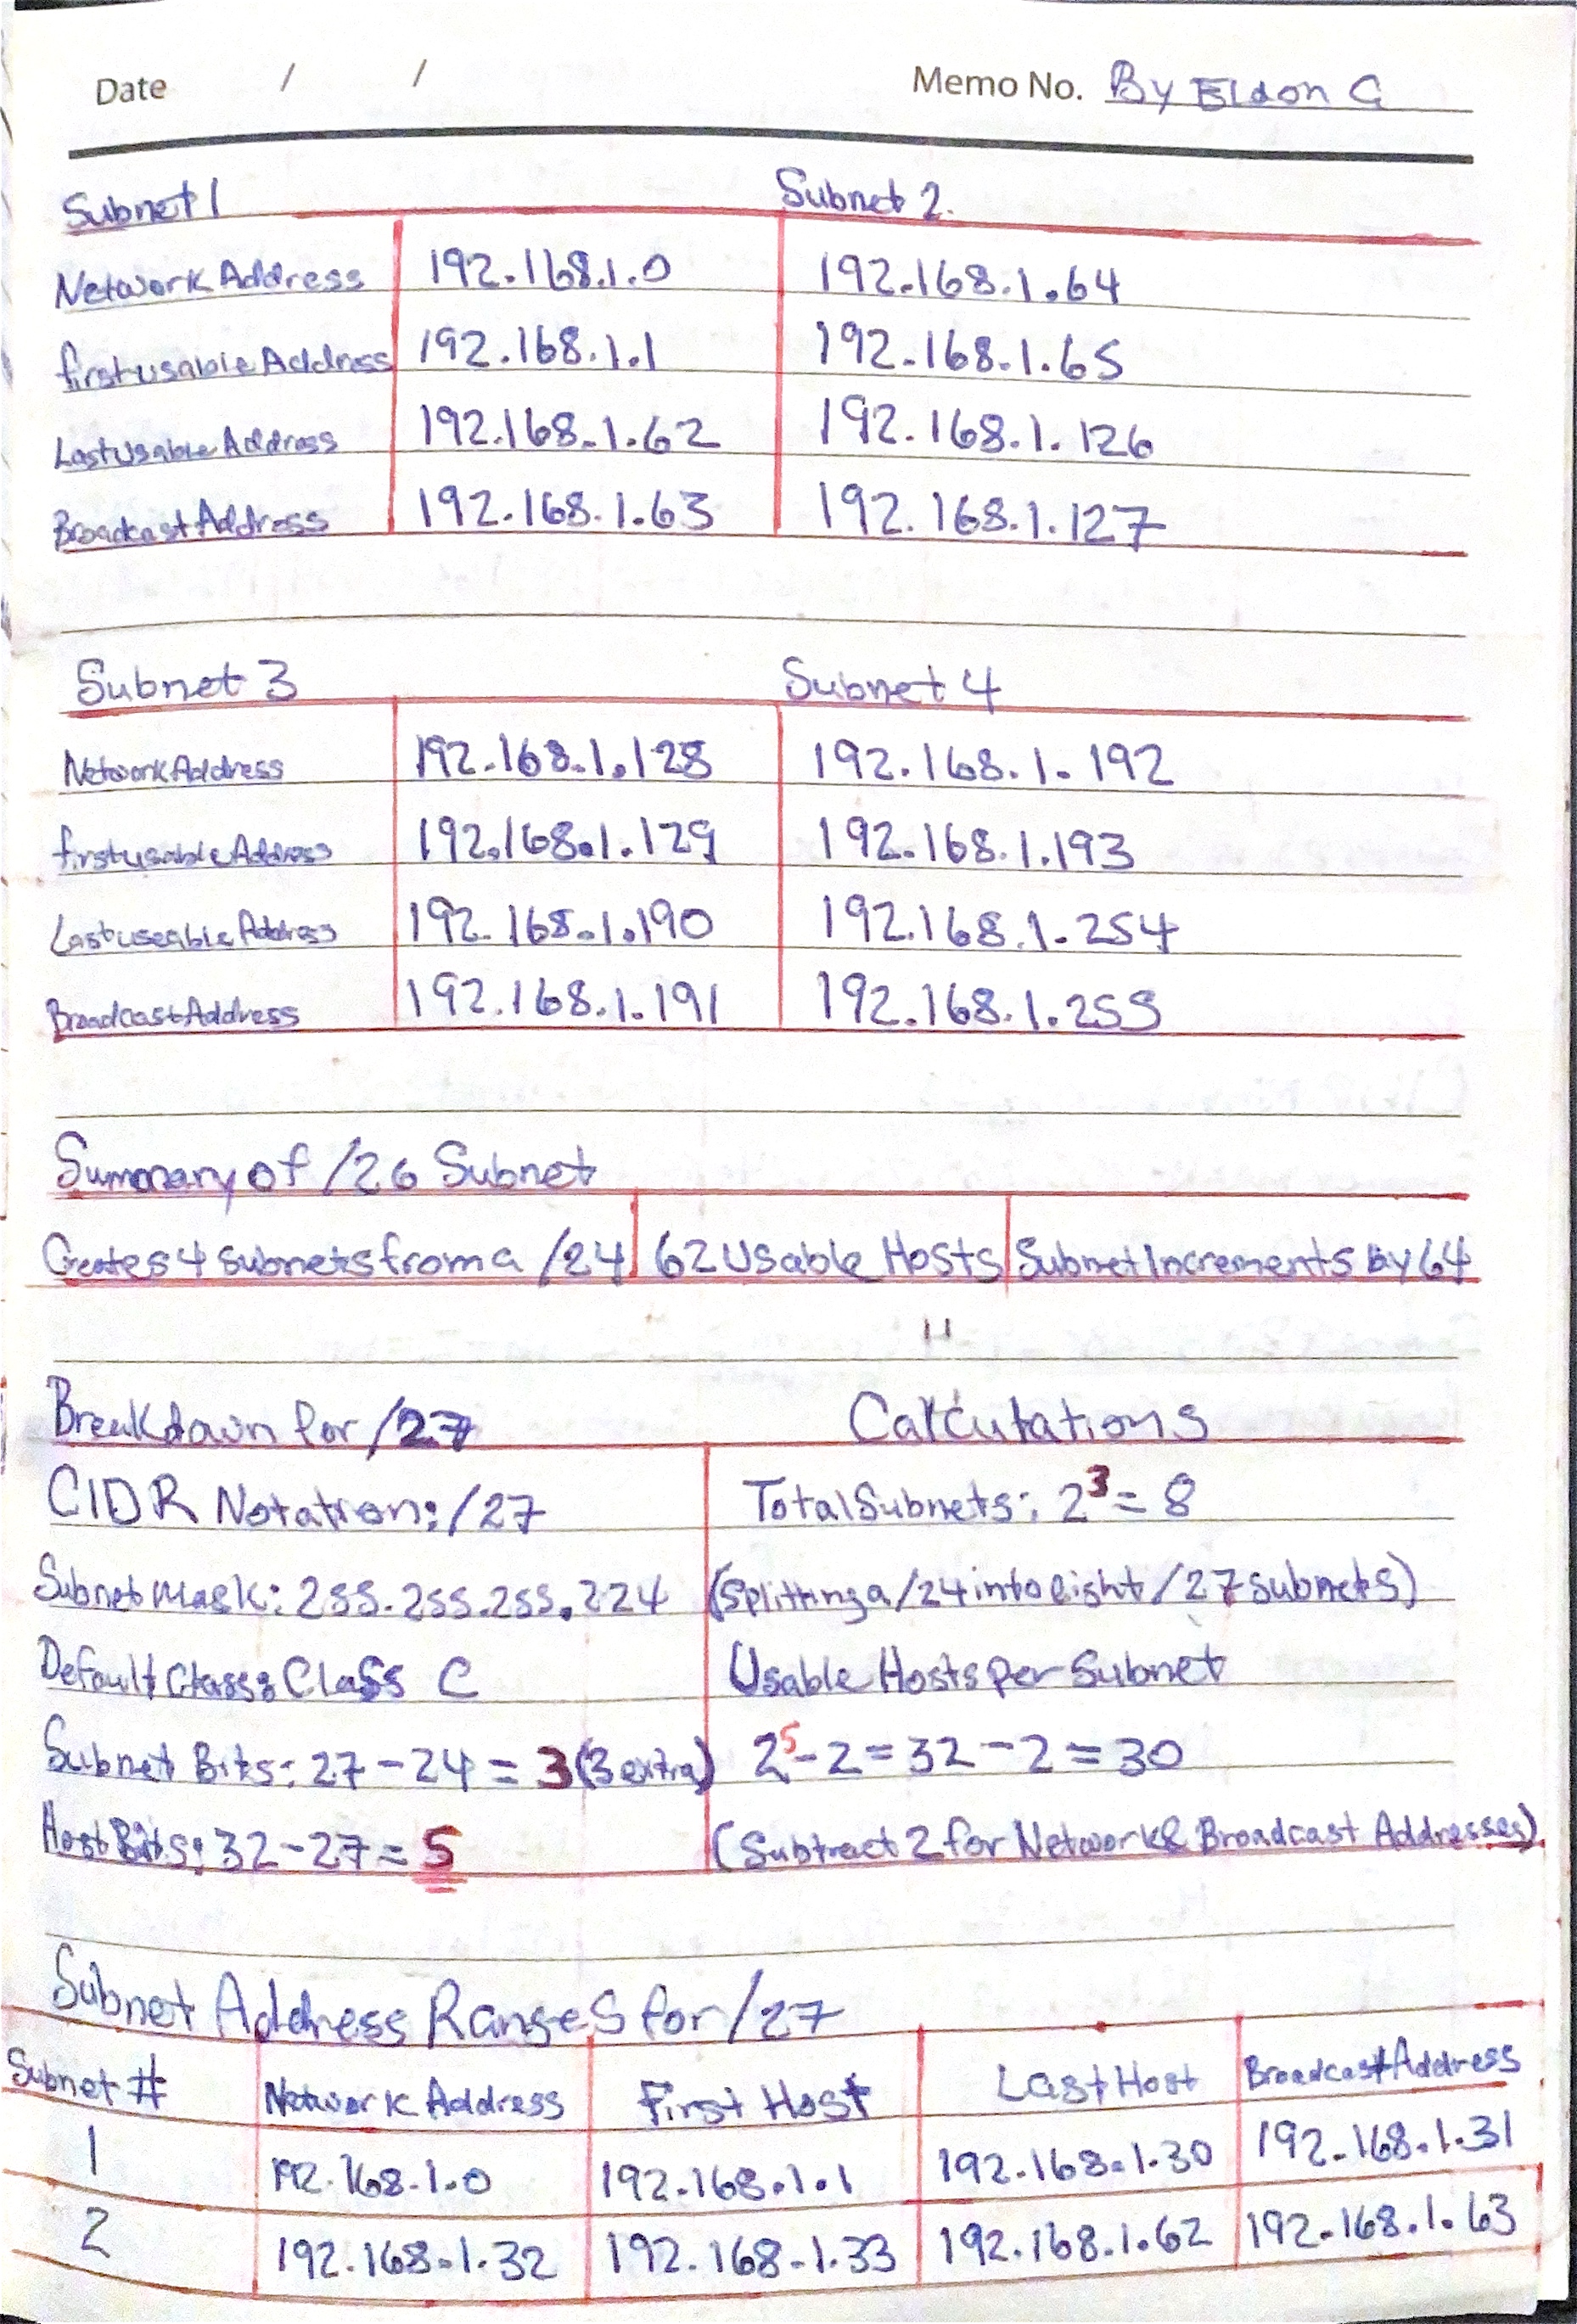 Date / / Memo No. By Eldon G
Subnet 1 Subnet 2.
Network Address 192.168.1.0 192.168.1.64
first usable Address 192.168.1.1 192.168.1.65
Last Usable Address 192.168.1.62 192.168.1.126
Broadcast Address 192.168.1.63 192.168.1.127
Subnet 3 Subnet 4
Network Address 192.168.1.128 192.168.1.192
first usable Address 192.168.1.129 192.168.1.193
Last useable Address 192.168.1.190 192.168.1.254
Broadcast Address 192.168.1.191 192.168.1.255
Summary of /26 Subnet
Creates 4 subnets from a /24 62 Usable Hosts Subnet Increments by 64
Breakdown for /27 Calculations
CIDR Notation: /27 Total Subnets: 2³ = 8
Subnet Mask: 255.255.255.224 (Splitting a /24 into eight /27 subnets)
Default Class: Class C Usable Hosts per Subnet
Subnet Bits: 27 - 24 = 3 (3 extra) 2⁵ - 2 = 32 - 2 = 30
Host Bits: 32 - 27 = 5 (Subtract 2 for Network & Broadcast Addresses)
Subnet Address Ranges for /27
Subnet # Network Address First Host Last Host Broadcast Address
1 192.168.1.0 192.168.1.1 192.168.1.30 192.168.1.31
2 192.168.1.32 192.168.1.33 192.168.1.62 192.168.1.63